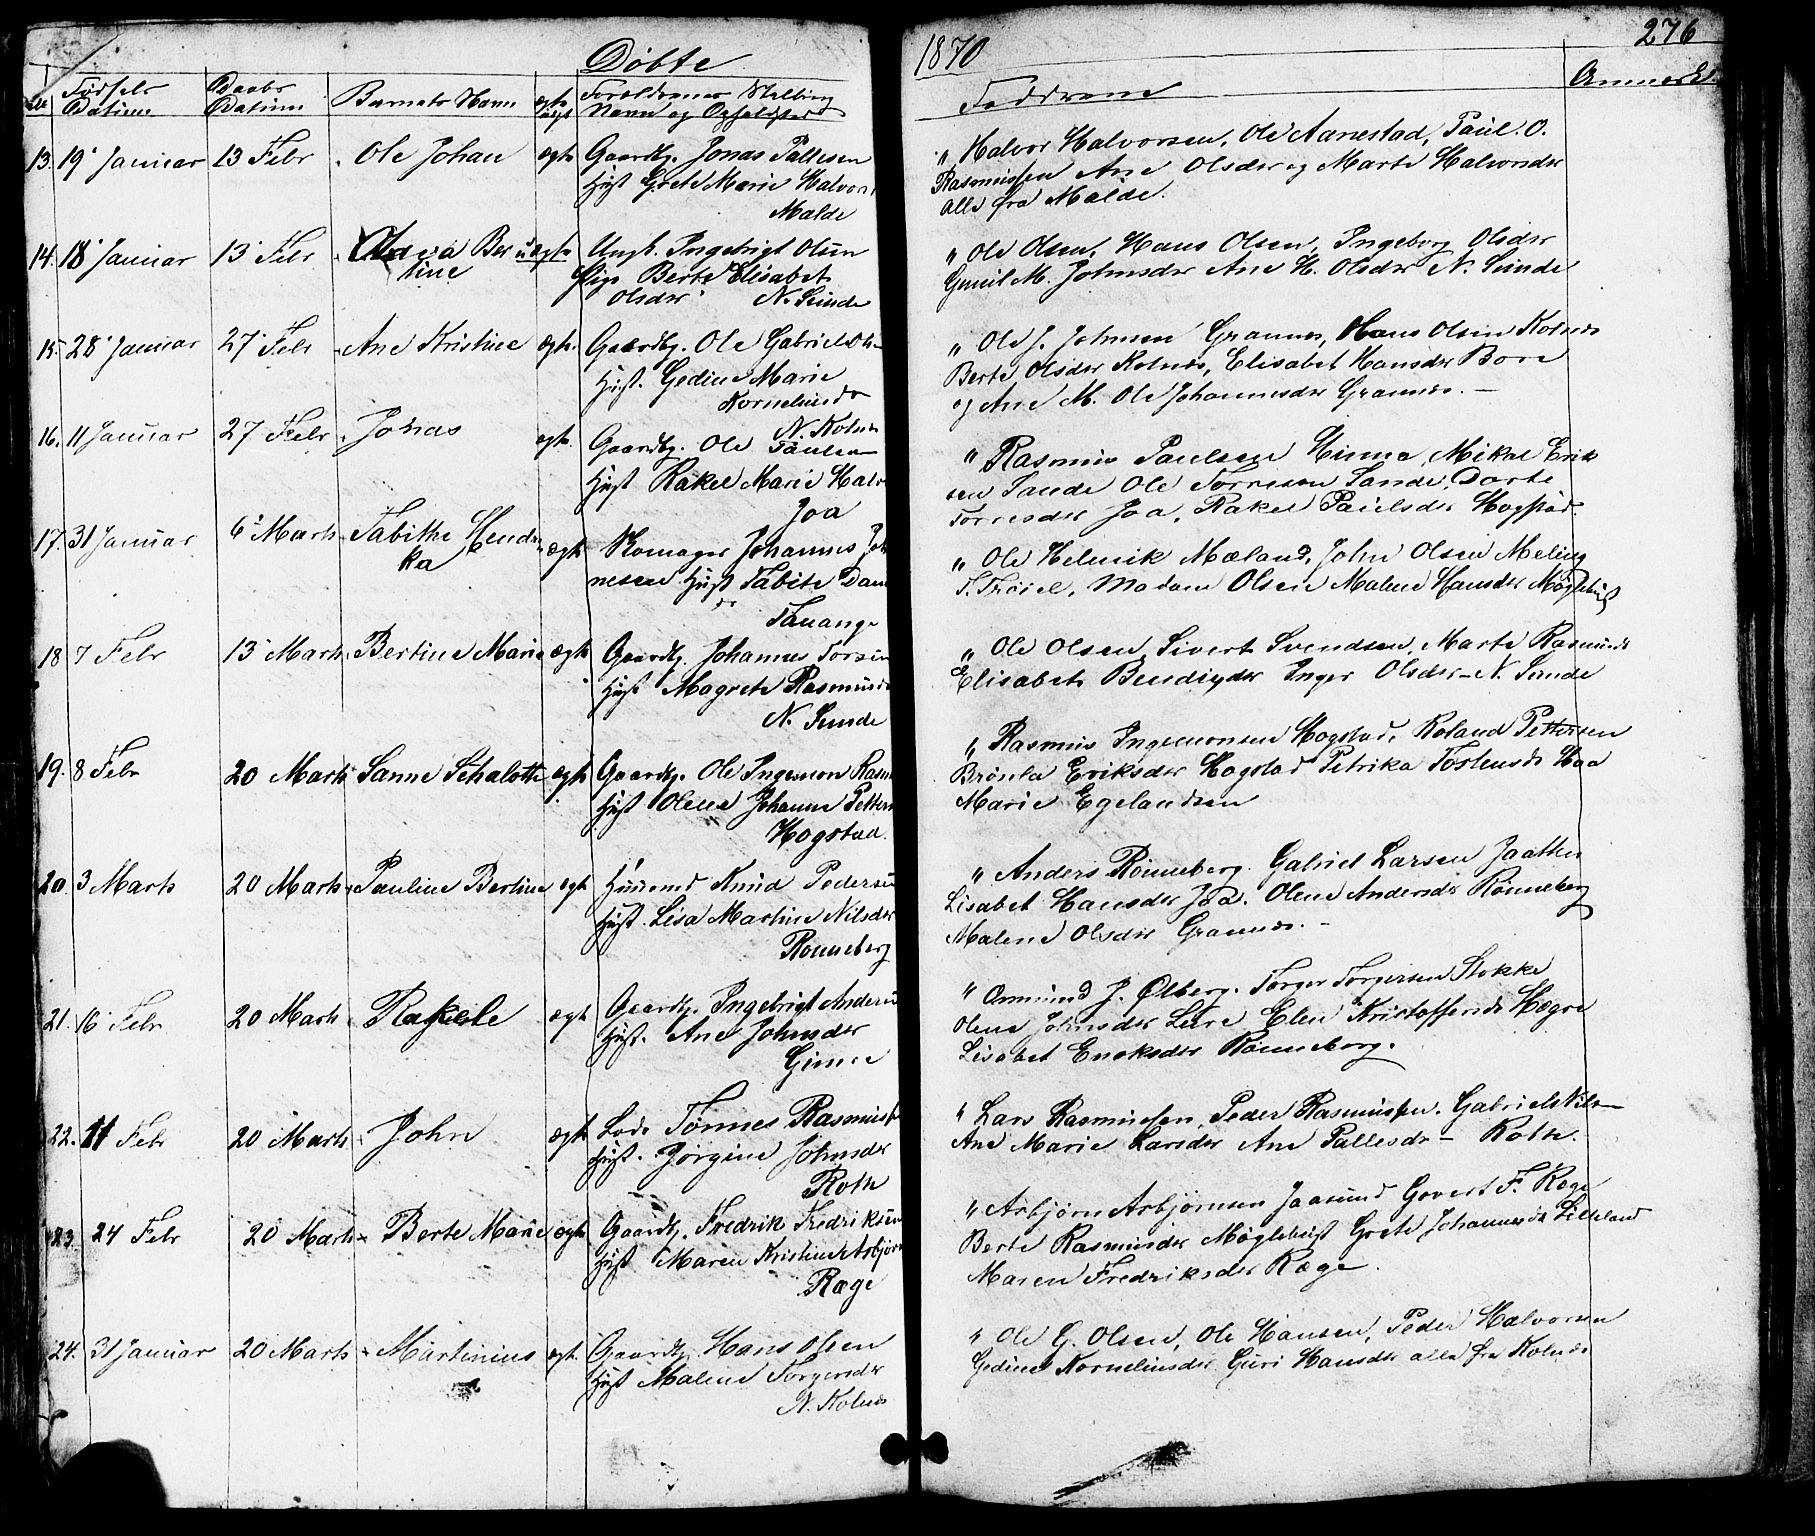 Døbte
1870
276
Fødsels
Datum
Daabs
Datum
Barnets Navn
ægte
uægt
Forældrenes Stilling
Navn og Opholdsted
Faddrene
Anmærk
13. 19' Januar 13 Febr. Ole Johan ægte Gaardbg. Jonas Pallesen
Hust Grete Marie Halvors
Malde
" Halvor Halvorsen, Ole Aanestad, Paul. O.
Rasmussen Ane Olsdr og Marte Halvorsdr
alle fra Malde.
14. 18' Januar 13' Febr Ber uægte Ungk. Ingebrigt Olsen
tine Pige Berte Elisabet
Olsdr N. Sunde
" Ole Olsen, Hans Olsen, Ingeborg Olsdr
Gunil M. Johnsdr Ane H. Olsdr N. Sunde
15. 28' Januar 27' Febr Ane Kristine ægte. Gaardbg. Ole Gabriel Ols
Hust. Gedine Marie
Korneliusdr
N. Kolnes
" Ole J. Johnsen Grannes, Hans Olsen Kolnes
Berte Olsdr Kolnes, Elisabet Hansdr Bore
og Ane M. Ole Johannesdr Grannes. —
16. 11 Januar 27 Febr. Jonas ægte. Gaardbg. Ole Paulsen
Hust Rakel Marie Halv
Joa
" Rasmus Paulsen Hinna, Mikal Erik
sen Sande Ole Tørresen Sande, Dorte
Torresdr Joa, Rakel Paulsdr Hogstad.
17. 31 Januar 6' Marts Tabithe Hendri
ka ægte Skomager Johannes Joh
nesen Hust Tabite Dani
dr
Tananger
" Ole Helmik Mæland, John Olsen Meling
T. Madam Olsen Malene Hansdr Møglebust
18 7 Febr 13' Marts. Bertine Marie ægte Gaardbg. Johannes Torsen
Hust Magrete Rasmusdr
N. Sunde
" Ole Olsen, Sivert Svendsen, Marte Rasmusdr
Elisabet Bendigdr Inger Olsdr — N. Sunde
19. 8 Febr 20 Marts Sanne Schalotte ægte Gaardbg. Ole Ingemon Rasm
Hust Olene Johanne Petters
Hogstad.
" Rasmus Ingemonsen Hogstad, Roland Pettersen
Brønla Eriksdr Hogstad Petrika Tostensdr Haa
Marie Egelandsen
20. 3 Marts 20 Marts Pauline Bertine ægte Huusmd Knud Pedersen
Hust. Lisa Martine Nilsdr
Rønneberg
" Anders Rønneberg. Gabriel Larsen Jaatten
Lisabet Hansdr Joa. Olene Andersdr Rønneberg
Malene Olsdr Grannes. —
21. 16' Febr 20 Marts Rakele ægte Gaardbg. Ingebrigt Andersen
Hust. Ane Johnsdr
Gimre
" Ommund J. Ølberg. Torger Torgersen Stokke
Olene Johnsdr Leire Elen Kristoffersdr Hægre
Lisabet Enoksdr Rønneberg.
22. 11 Febr 20 Marts. John ægte Lods Tønnes Rasmuss
Hust. Jørgine Johnsdr
Roth
" Lars Rasmussen, Peder Rasmussen. Gabriel Nils
Ane Marie Larsdr Ane Pallesdr — Roth.
23. 24 Febr 20 Marts Berte Marie ægte Gaardbg. Fredrik Fredriksen
Hust Maren Kristine Asbjørn
Ræge
" Asbjørn Asbjørnsen Jaasund Govert F. Ræge
Berte Rasmusdr Møglebust Grete Johannesdr Lilleland
Maren Fredriksdr Ræge.
24. 31 Januar 20 Marts Martinius ægte. Gaardbg. Hans Olsen
Hust Malene Torgersdr
N. Kolnes
" Ole G. Olsen, Ole Hansen, Peder Halvorsen
Gedine Korneliusdr, Guri Hansdr alle fra Kolnes